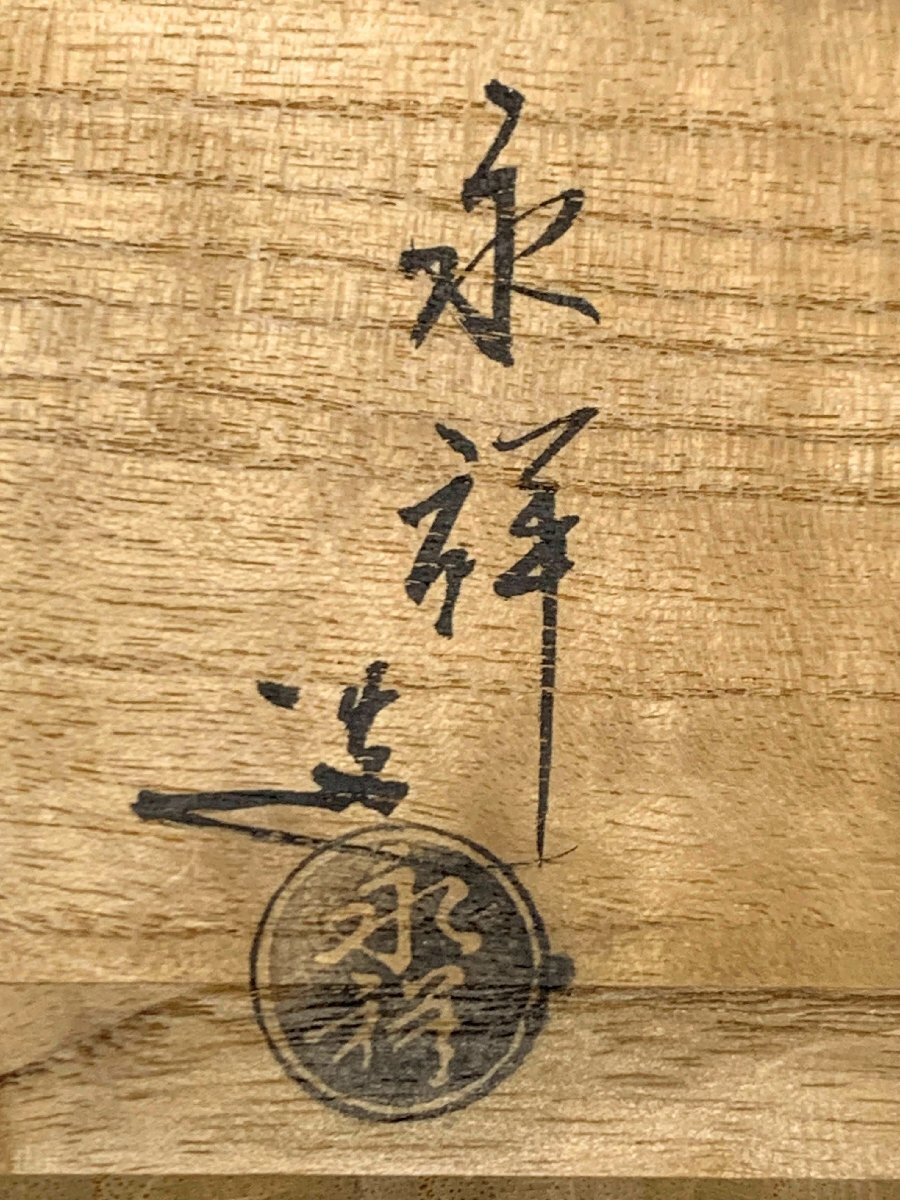 永祥
造
永祥